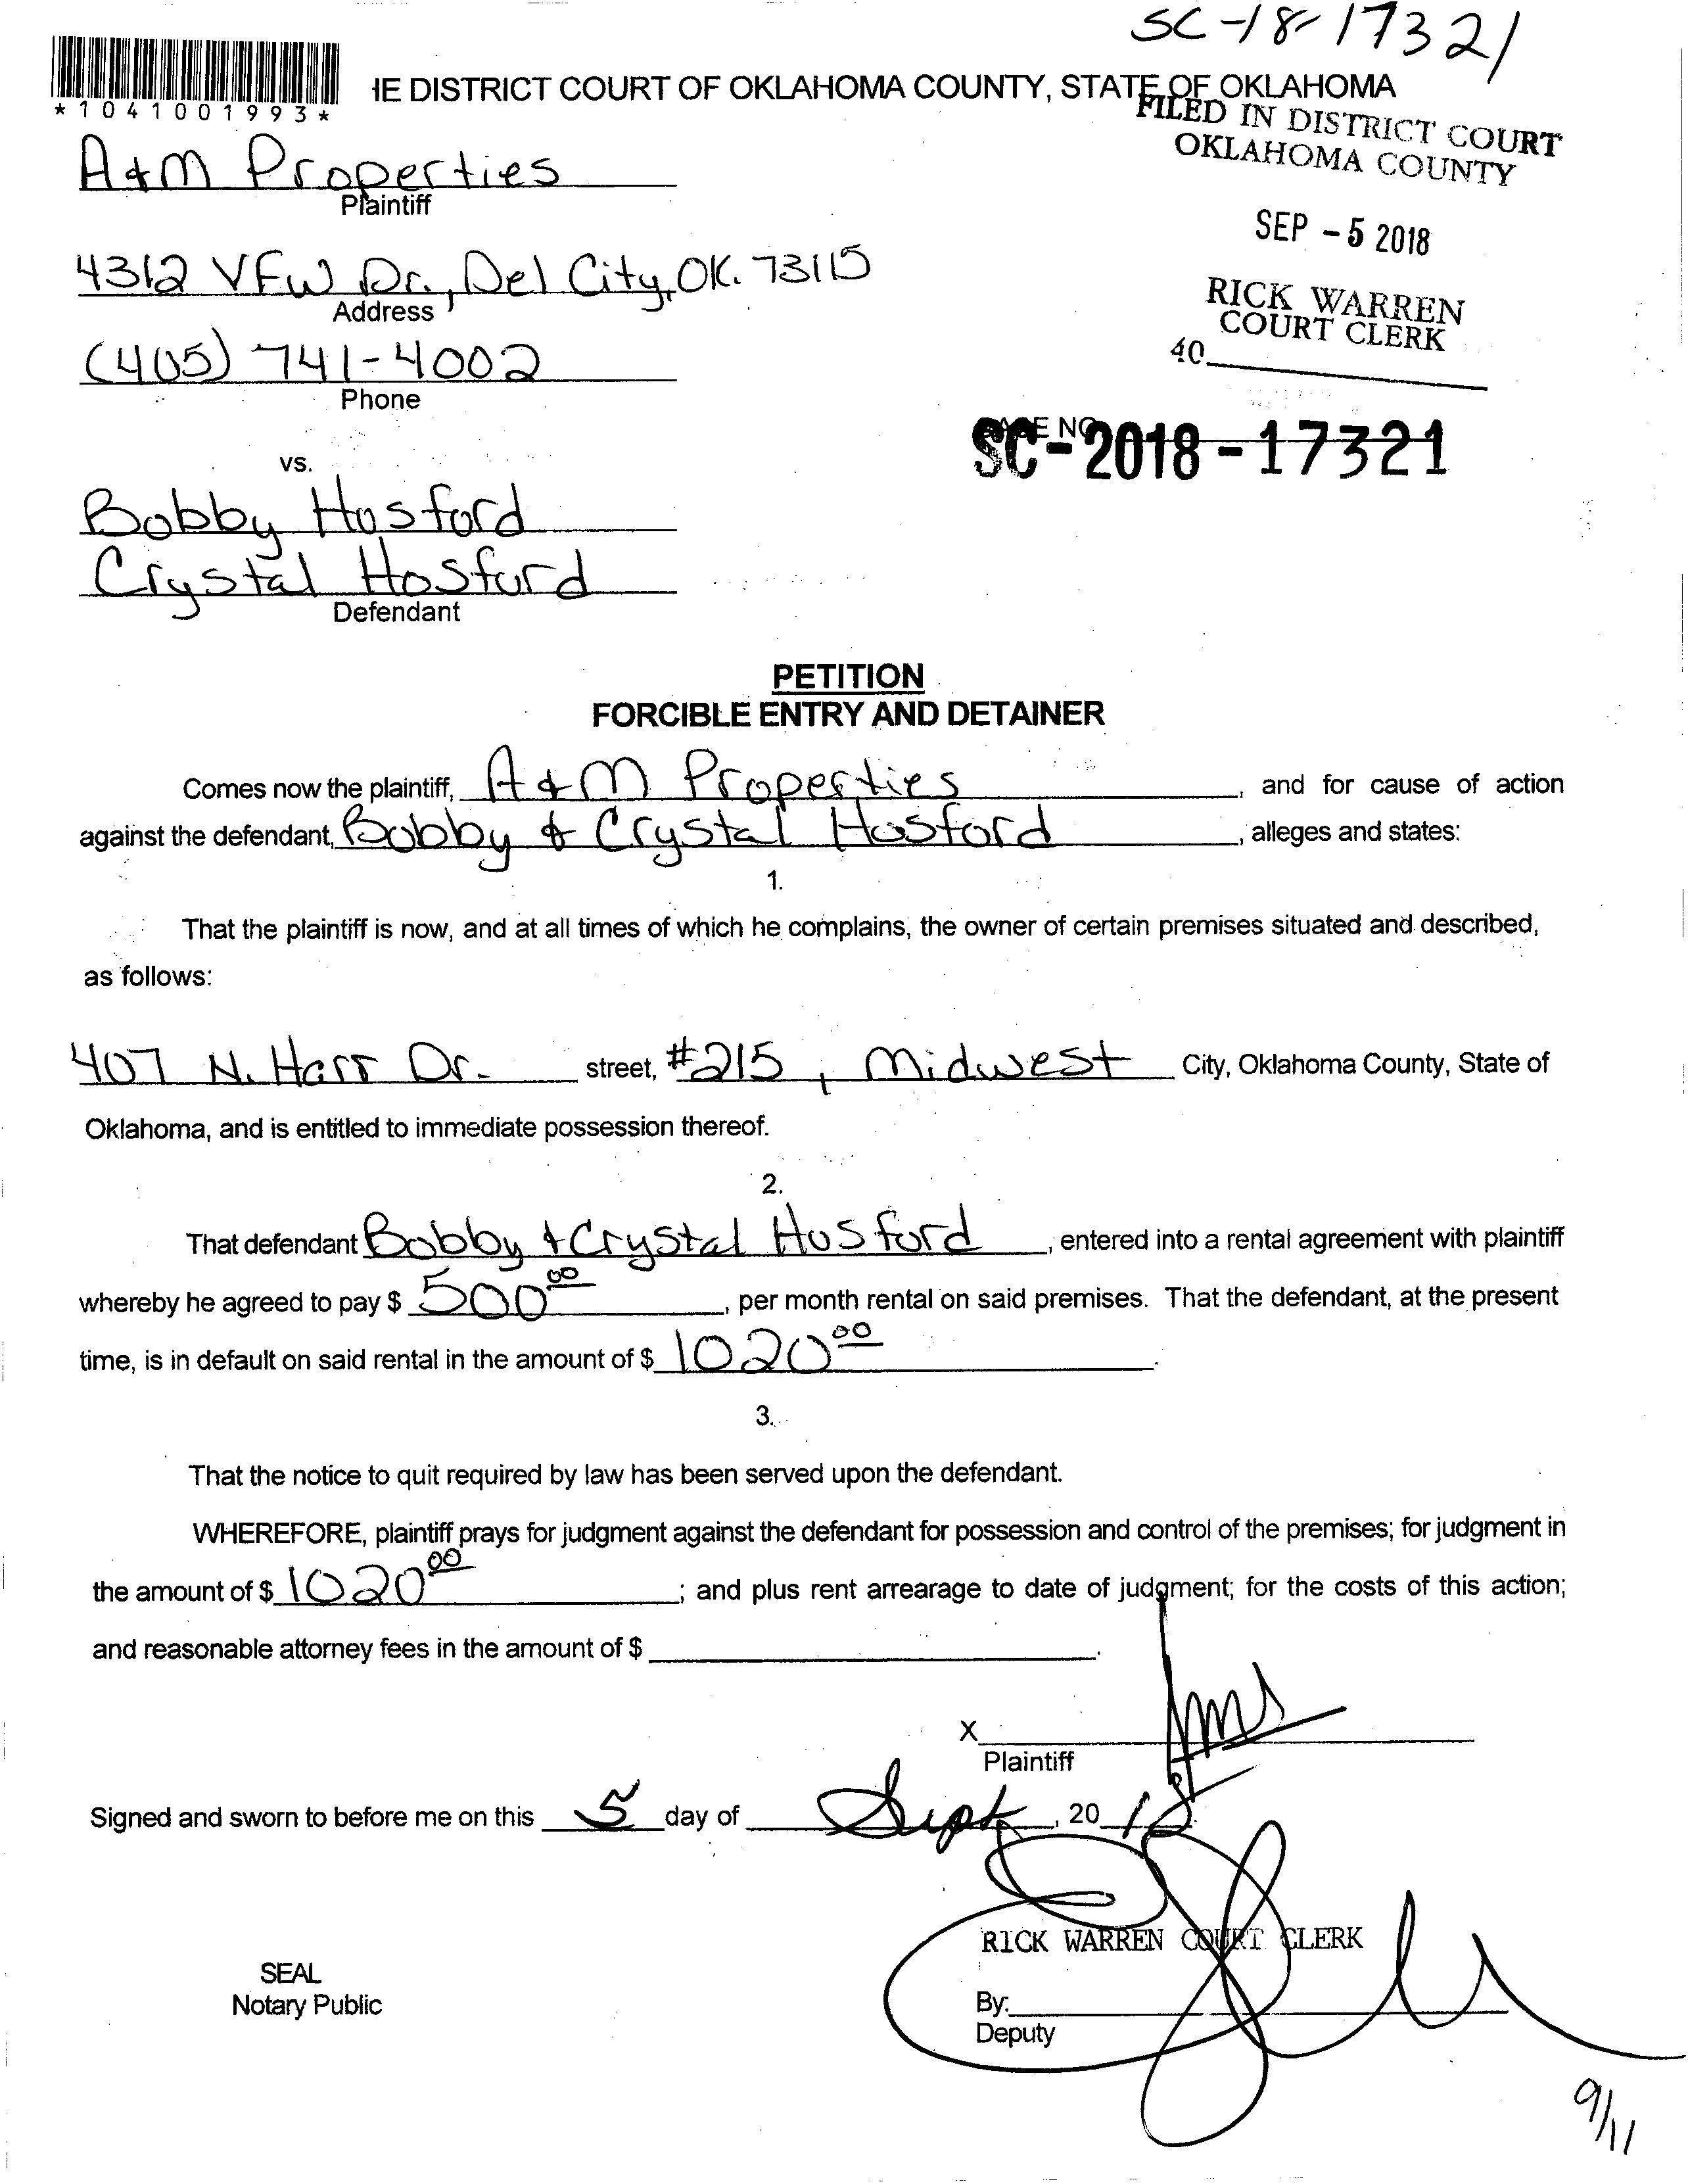 SC-18-17321
*1041001993*
IE DISTRICT COURT OF OKLAHOMA COUNTY, STATE OF OKLAHOMA
FILED IN DISTRICT COURT
OKLAHOMA COUNTY
A&M Properties
Plaintiff
SEP -5 2018
4312 VFW Dr., Del City, OK. 73115
Address
RICK WARREN
COURT CLERK
40
(405) 741-4002
Phone
SC-2018-17321
vs.
Bobby Hosford
Crystal Hosford
Defendant
PETITION
FORCIBLE ENTRY AND DETAINER
Comes now the plaintiff, A&M Properties, and for cause of action
against the defendant, Bobby & Crystal Hosford, alleges and states:
1.
That the plaintiff is now, and at all times of which he complains, the owner of certain premises situated and described,
as follows:
407 N. Harr Dr. street, #215, Midwest City, Oklahoma County, State of
Oklahoma, and is entitled to immediate possession thereof.
2.
That defendant Bobby & Crystal Hosford, entered into a rental agreement with plaintiff
whereby he agreed to pay $ 500 00, per month rental on said premises. That the defendant, at the present
time, is in default on said rental in the amount of $ 1020 00.
3.
That the notice to quit required by law has been served upon the defendant.
WHEREFORE, plaintiff prays for judgment against the defendant for possession and control of the premises; for judgment in
the amount of $ 1020 00; and plus rent arrearage to date of judgment; for the costs of this action;
and reasonable attorney fees in the amount of $ .
X
Plaintiff
Signed and sworn to before me on this 5 day of Sept, 20 18
RICK WARREN COURT CLERK
SEAL
Notary Public
By:
Deputy
9/11